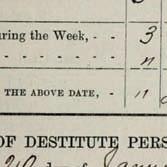 uring the Week, - - 3
- - - - - - - "
THE ABOVE DATE, - "
OF DESTITUTE PERS